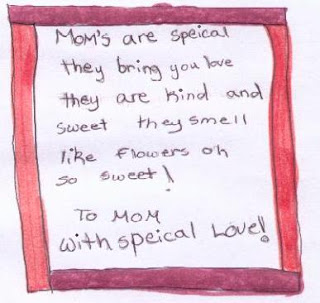 Mom's are speical
they bring you love
they are kind and
sweet they smell
like flowers oh
so sweet!
To Mom
with speical Love!